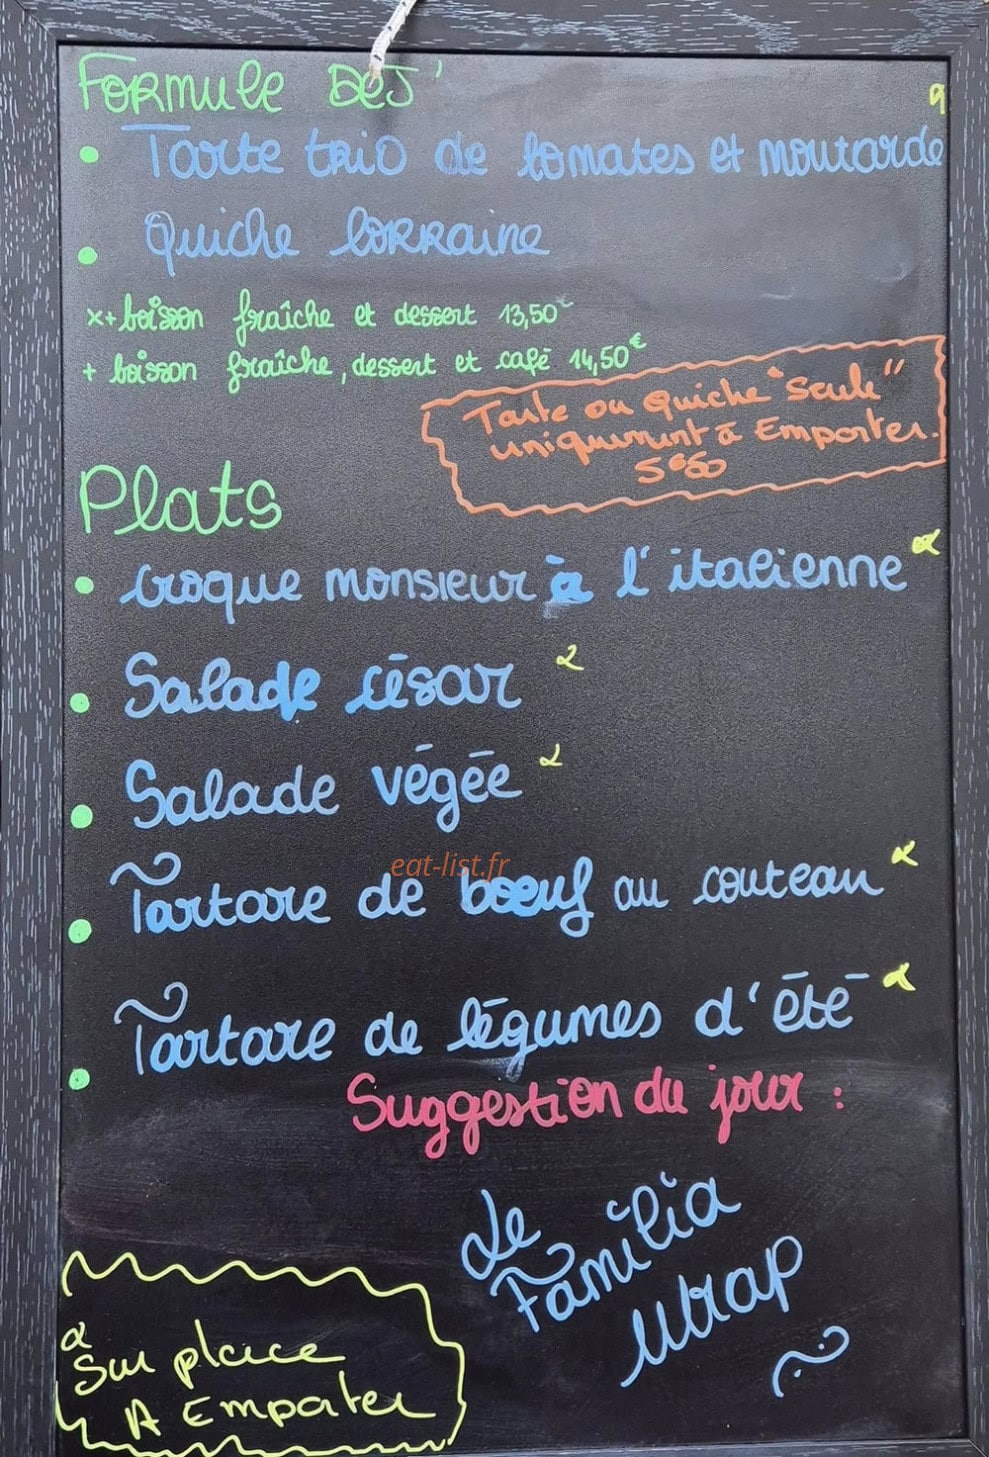 Formule Dej'
α
• Tarte trio de tomates et moutarde
• Quiche lorraine
x+ boisson fraîche et dessert 13,50€
+ boisson fraîche, dessert et café 14,50€
Tarte ou Quiche "Seule"
uniquement à Emporter.
5€50
Plats
• Croque monsieur à l'italienne α
• Salade césar α
• Salade végée α
eat-list.fr
• Tartare de boeuf au couteau α
• Tartare de légumes d'été α
Suggestion du jour :
Le
Familia
Wrap
α
Sur place
A Emporter